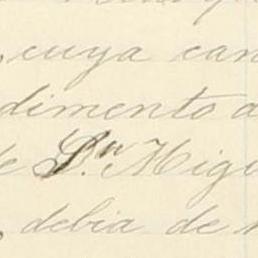 , cuya can
dimento a
e Sn. Migu
, debia de